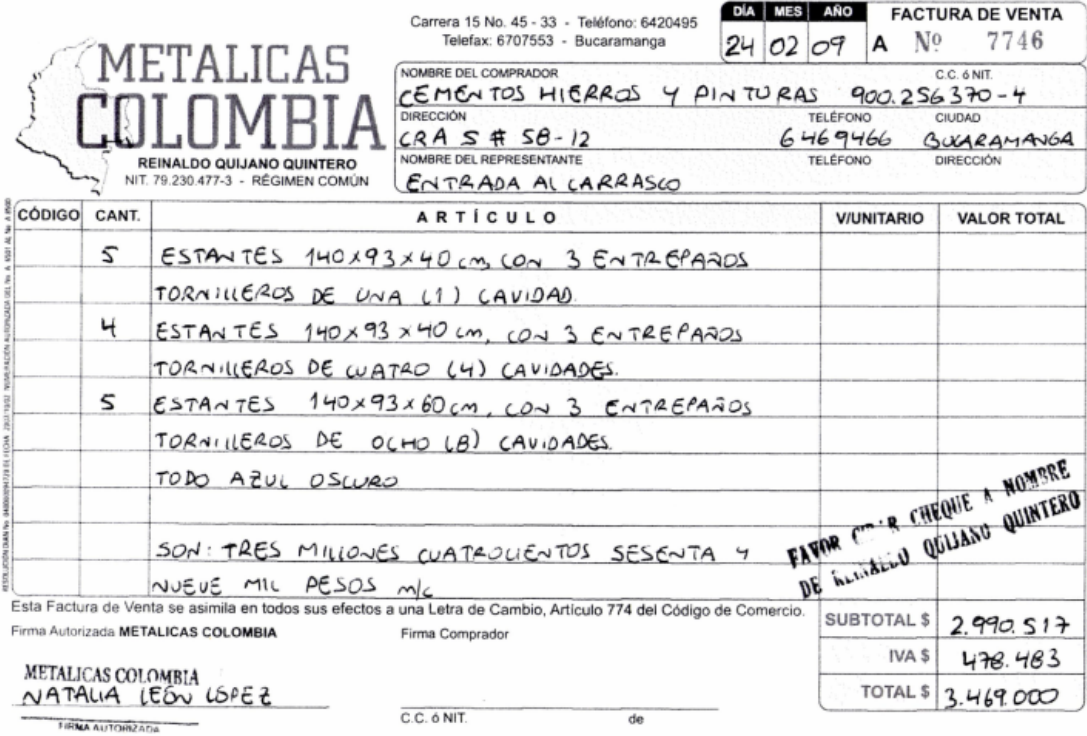 METALICAS
COLOMBIA
REINALDO QUIJANO QUINTERO
NIT. 79.230.477-3 - RÉGIMEN COMÚN
Carrera 15 No. 45 - 33 - Teléfono: 6420495
Telefax: 6707553 - Bucaramanga
DÍA MES AÑO
24 02 09
FACTURA DE VENTA
A Nº 7746
NOMBRE DEL COMPRADOR C.C. ó NIT.
CEMENTOS HIERROS Y PINTURAS 900.256370-4
DIRECCIÓN TELÉFONO CIUDAD
CRA 5 # 58-12 6469466 BUCARAMANGA
NOMBRE DEL REPRESENTANTE TELÉFONO DIRECCIÓN
ENTRADA AL CARRASCO
CÓDIGO CANT. ARTÍCULO V/UNITARIO VALOR TOTAL
5 ESTANTES 140x93x40 cm, CON 3 ENTREPAÑOS
TORNILLEROS DE UNA (1) CAVIDAD.
4 ESTANTES 140x93x40 cm, CON 3 ENTREPAÑOS
TORNILLEROS DE CUATRO (4) CAVIDADES.
5 ESTANTES 140x93x60 cm, CON 3 ENTREPAÑOS
TORNILLEROS DE OCHO (8) CAVIDADES.
TODO AZUL OSCURO
SON: TRES MILLONES CUATROCIENTOS SESENTA Y
NUEVE MIL PESOS m/c
FAVOR CHEQUE A NOMBRE
DE QUIJANO QUINTERO
Esta Factura de Venta se asimila en todos sus efectos a una Letra de Cambio, Artículo 774 del Código de Comercio.
SUBTOTAL $ 2.990.517
IVA $ 478.483
TOTAL $ 3.469.000
Firma Autorizada METALICAS COLOMBIA
Firma Comprador
METALICAS COLOMBIA
NATALIA LEÓN LÓPEZ
FIRMA AUTORIZADA
C.C. ó NIT. de